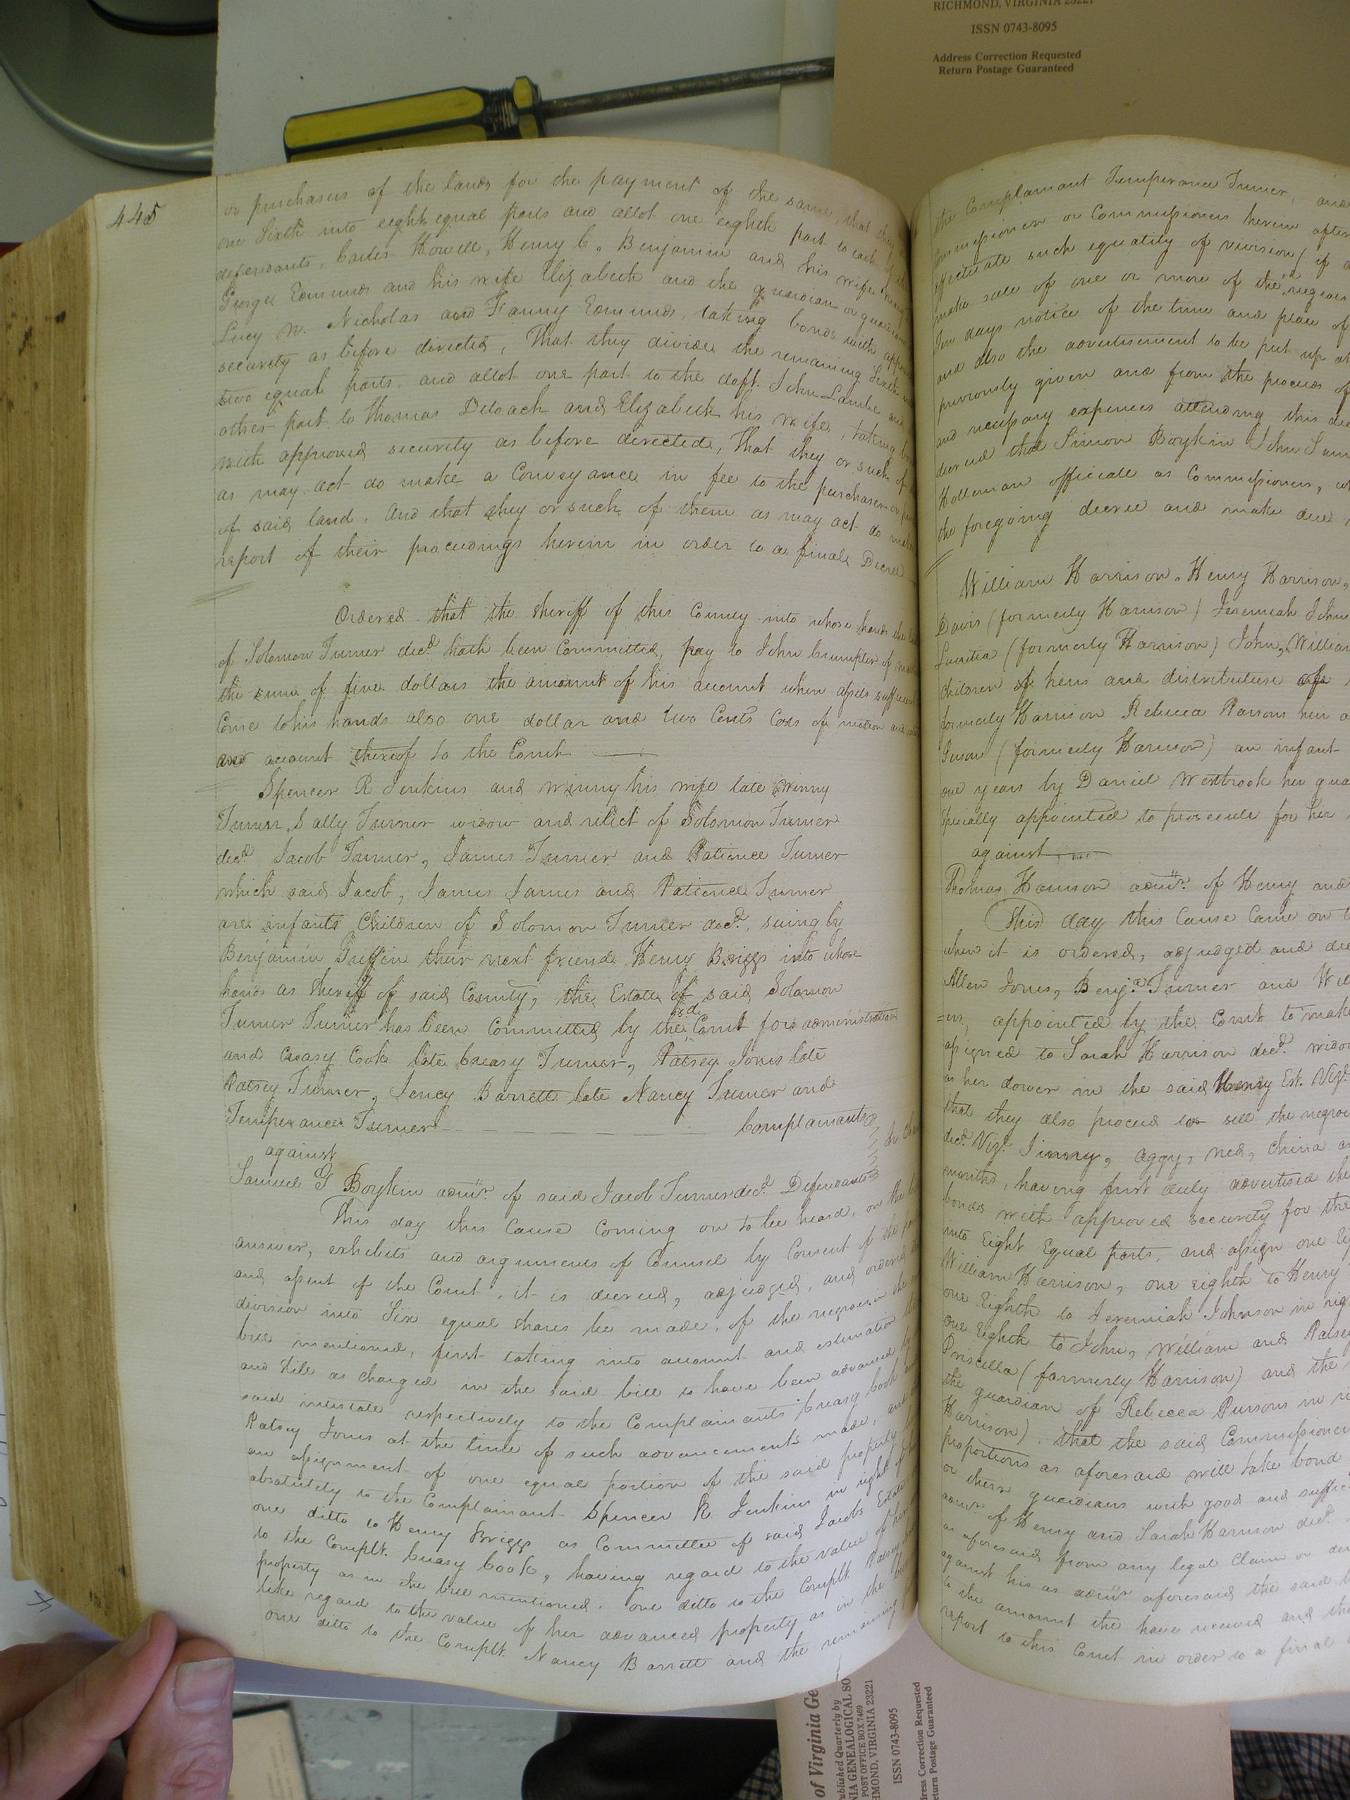 RICHMOND, VIRGINIA 23221
ISSN 0743-8095
Address Correction Requested
Return Postage Guaranteed
445
or purchasers of the lands for the payment of the same, that they
one Sixth into eight equal parts and allot one eighth part to each of
defendants, Howell, Henry C. Benjamin and his wife
George Edmunds and his wife Elizabeth and the guardian or guardians
Lucy W. Nicholas and Fanny Edmunds, taking bonds with
security as before directed, That they divide the remaining Sixth
two equal parts, and allot one part to the deft. John Lamb and
other part to Thomas Deloach and Elizabeth his wife, taking
with approved security as before directed, That they or such of
as may act do make a Conveyance in fee to the purchaser or
of said land, and that they or such of them as may act do make
report of their proceedings herein in order to a final Decree
Ordered that the Sheriff of this County into whose hands the
of Solomon Turner decd. hath been Committed, pay to John Crumpler
the sum of five dollars the amount of his account when assets sufficient
Come to his hands also one dollar and two Cents Costs of motion and
and account thereof to the Court
Spencer R Jenkins and Winny his wife late Winny
Turner, Sally Turner widow and relict of Solomon Turner
decd. Jacob Turner, James Turner and Patience Turner
which said Jacob, James James and Patience Turner
are infants Children of Solomon Turner decd. suing by
Benjamin Griffin their next friend Henry Briggs into whose
hands as Sheriff of said County, the Estate of said Solomon
Turner Turner has been Committed by the sd. Court for administration
and Creasy Cook late Creasy Turner, Patsey Jones late
Patsey Turner, Nancy Barrett late Nancy Turner and
Temperance Turner Complainants
against
Samuel G Boykin admr. of said Jacob Turner decd. Defendants
This day this Cause Coming on to be heard, on the
answer, exhibits and arguments of Counsel by Consent of the
and assent of the Court, it is decreed, adjudged, and ordered
division into Six equal shares be made, of the negroes in the
bill mentioned, first taking into account and estimation
and Still as charged in the said bill to have been advanced by
said intestate respectively to the Complainants Creasy Cook and
Patsey Jones at the time of such advancements made, and
an assignment of one equal portion of the said property
absolutely to the Complainant Spencer R. Jenkins in right of
one ditto to Henry Briggs as Committee of said Jacobs Estate
to the Complt. Creasy Cook, having regard to the value of her
property as in the bill mentioned. one ditto to the Complt Patsey
like regard to the value of her advanced property as in the bill
one ditto to the Complt. Nancy Barrett and the remaining
the Complainant Temperance Turner, and
Commissioner or Commissioners herein after
effectuate such equality of division, if
make sale of one or more of the negroes
Ten days notice of the time and place of
and also the advertisement to be put up at
previously given and from the proceeds of
and necessary expences attending this
decreed that Simon Boykin John
Holleman officiate as Commissioners,
the foregoing decree and make due
William Harrison, Henry Harrison,
Davis (formerly Harrison) Jeremiah Johnson
Lucretia (formerly Harrison) John, William
Children of heirs and distributees of
formerly Harrison Rebecca Parsons heir
(formerly Harrison) an infant
one years by Daniel Westbrook her
specially appointed to prosecute for her
against
Thomas Harrison admr. of Henry and
This day this Cause Came on to
when it is ordered, adjudged and
Allen Jones, Benja. Turner and
appointed by the Court to make
assigned to Sarah Harrison decd. widow
as her dower in the said Henry Est. Vizt.
that they also proceed to sell the negroes
decd. Vizt. Jimmy, Aggy, Ned, China
months, having first duly advertised the
bonds with approved security for the
into Eight Equal parts, and assign one
William Harrison, one eighth to Henry
one Eighth to Jeremiah Johnson in right
one Eighth to John, William and Patsey
Priscilla (formerly Harrison) and the
the guardian of Rebecca Parsons in
Harrison). that the said Commissioners
proportions as aforesaid will take bond
or their guardians with good and
admr. of Henry and Sarah Harrison decd.
as aforesaid from any legal Claim or
against his as admr. aforesaid the said
to the amount the have received and
report to this Court in order to a final
of Virginia Ge
Published Quarterly by
NIA GENEALOGICAL SO
POST OFFICE BOX 7469
HMOND, VIRGINIA 23221
ISSN 0743-8095
dress Correction Requested
eturn Postage Guaranteed